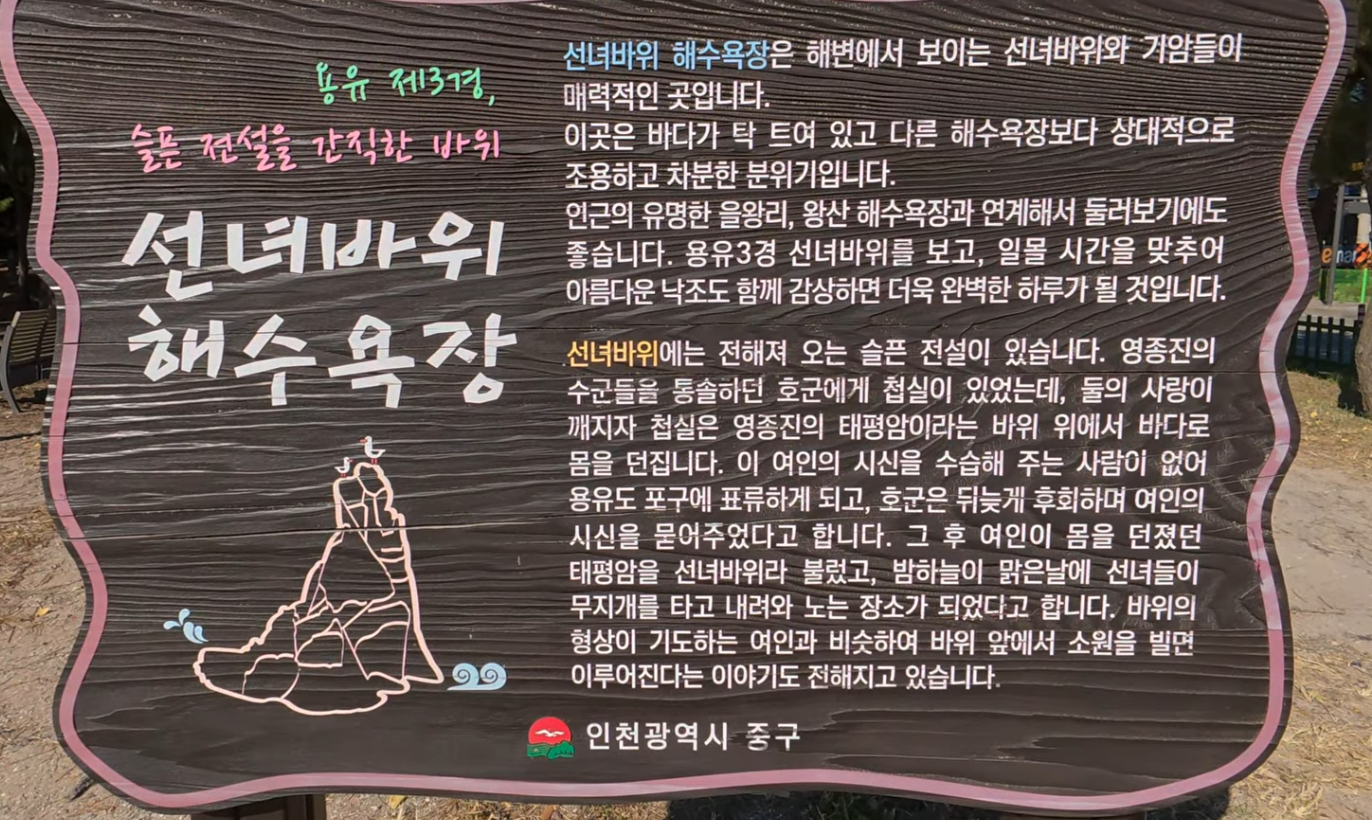 용유 제3경,
슬픈 전설을 간직한 바위
선녀바위
해수욕장
선녀바위 해수욕장은 해변에서 보이는 선녀바위와 기암들이
매력적인 곳입니다.
이곳은 바다가 탁 트여 있고 다른 해수욕장보다 상대적으로
조용하고 차분한 분위기입니다.
인근의 유명한 을왕리, 왕산 해수욕장과 연계해서 둘러보기에도
좋습니다. 용유3경 선녀바위를 보고, 일몰 시간을 맞추어
아름다운 낙조도 함께 감상하면 더욱 완벽한 하루가 될 것입니다.
선녀바위에는 전해져 오는 슬픈 전설이 있습니다. 영종진의
수군들을 통솔하던 호군에게 첩실이 있었는데, 둘의 사랑이
깨지자 첩실은 영종진의 태평암이라는 바위 위에서 바다로
몸을 던집니다. 이 여인의 시신을 수습해 주는 사람이 없어
용유도 포구에 표류하게 되고, 호군은 뒤늦게 후회하며 여인의
시신을 묻어주었다고 합니다. 그 후 여인이 몸을 던졌던
태평암을 선녀바위라 불렀고, 밤하늘이 맑은날에 선녀들이
무지개를 타고 내려와 노는 장소가 되었다고 합니다. 바위의
형상이 기도하는 여인과 비슷하여 바위 앞에서 소원을 빌면
이루어진다는 이야기도 전해지고 있습니다.
인천광역시 중구